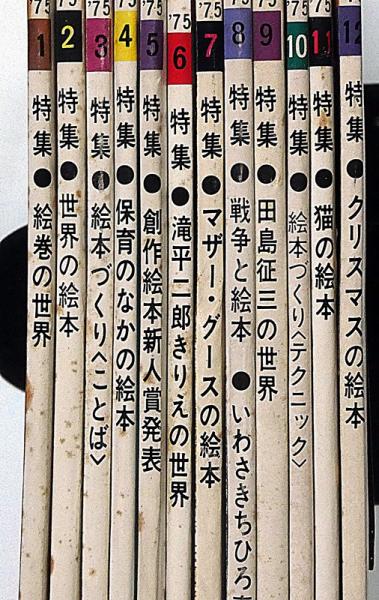 '75 1 特集●絵巻の世界
'75 2 特集●世界の絵本
'75 3 特集●絵本づくり〈ことば〉
'75 4 特集●保育のなかの絵本
'75 5 特集●創作絵本新人賞発表
'75 6 特集●滝平二郎きりえの世界
'75 7 特集●マザー・グースの絵本
'75 8 特集●戦争と絵本●いわさきちひろ
'75 9 特集●田島征三の世界
'75 10 特集●絵本づくり〈テクニック〉
'75 11 特集●猫の絵本
'75 12 特集●クリスマスの絵本